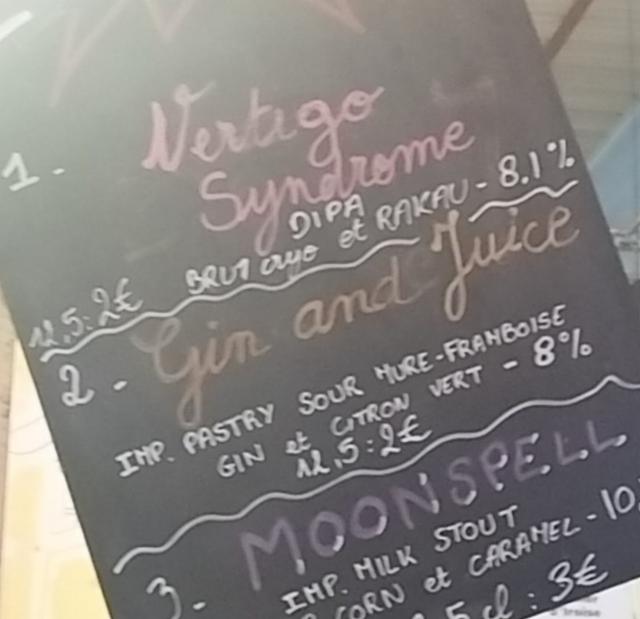 1. Vertigo
Syndrome
DIPA
BRUT cryo et RAKAU - 8.1%
12,5: 2€
2. Gin and Juice
IMP. PASTRY SOUR MURE-FRAMBOISE
GIN et CITRON VERT - 8%
12,5: 2€
3. MOONSPELL
IMP. MILK STOUT
CORN et CARAMEL - 10
5 cl : 3€